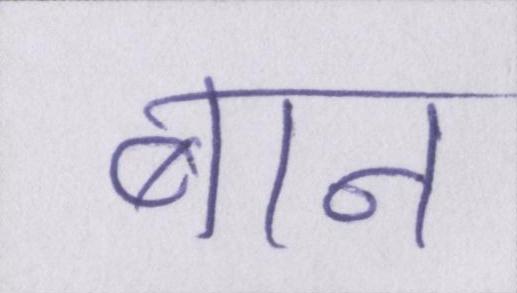 बान